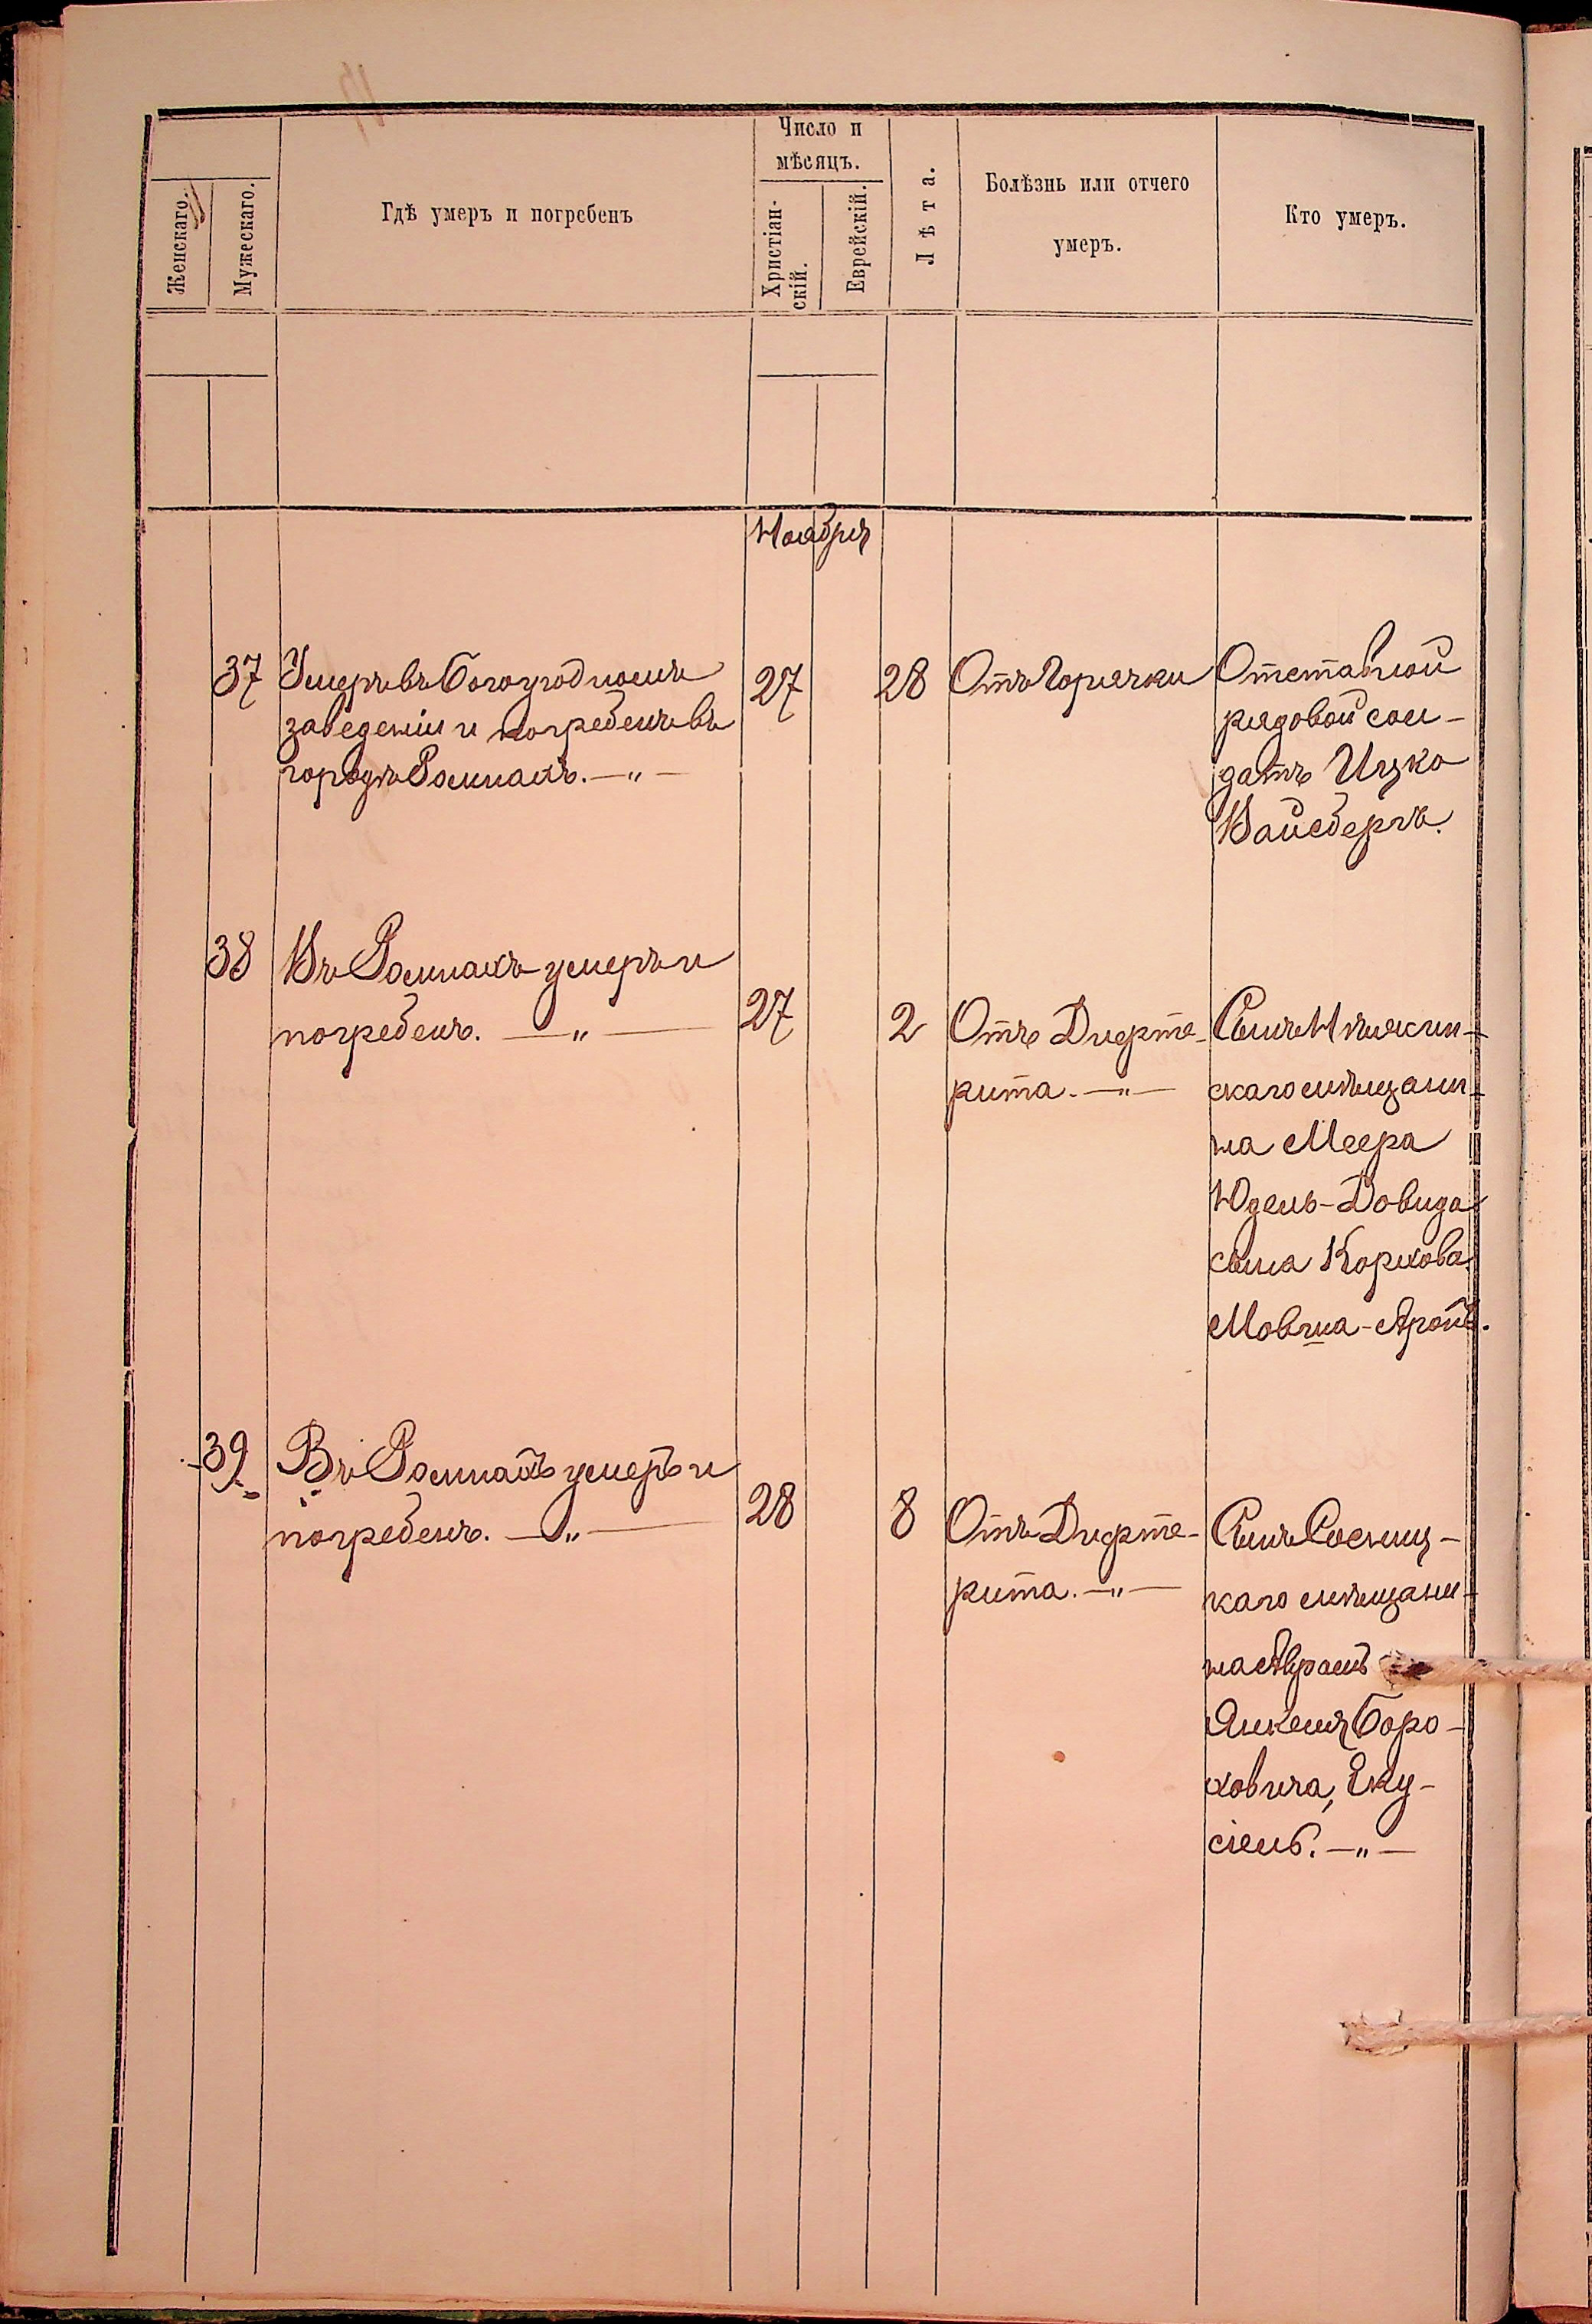 Женскаго.
Мужескаго.
Гдѣ умеръ и погребенъ
Число и
мѣсяцъ.
Христіан-
скій.
Еврейскій.
Лѣта.
Болѣзнь или отчего
умеръ.
Кто умеръ.
Ноября
37
Умеръ въ богоугодномъ
заведеніи и погребенъ въ
городѣ Ромнахъ. —„—
27
28
Отъ Горячки
Отставной
рядовой сол-
датъ Ицко
Вайсбергъ.
38
Въ Ромнахъ умеръ и
погребенъ. —„—
27
2
Отъ Дифте-
рита. —„—
Сынъ Нѣжин-
скаго мѣщани-
на Меера
Юдель-Довида
сына Корхова
Мовша-Аронъ.
39
Въ Ромнахъ умеръ и
погребенъ. —„—
28
8
Отъ Дифте-
рита. —„—
Сынъ Сосниц-
каго мѣщани-
на Абрамъ
Янкеля Боро-
ховича, Еку-
сіель. —„—